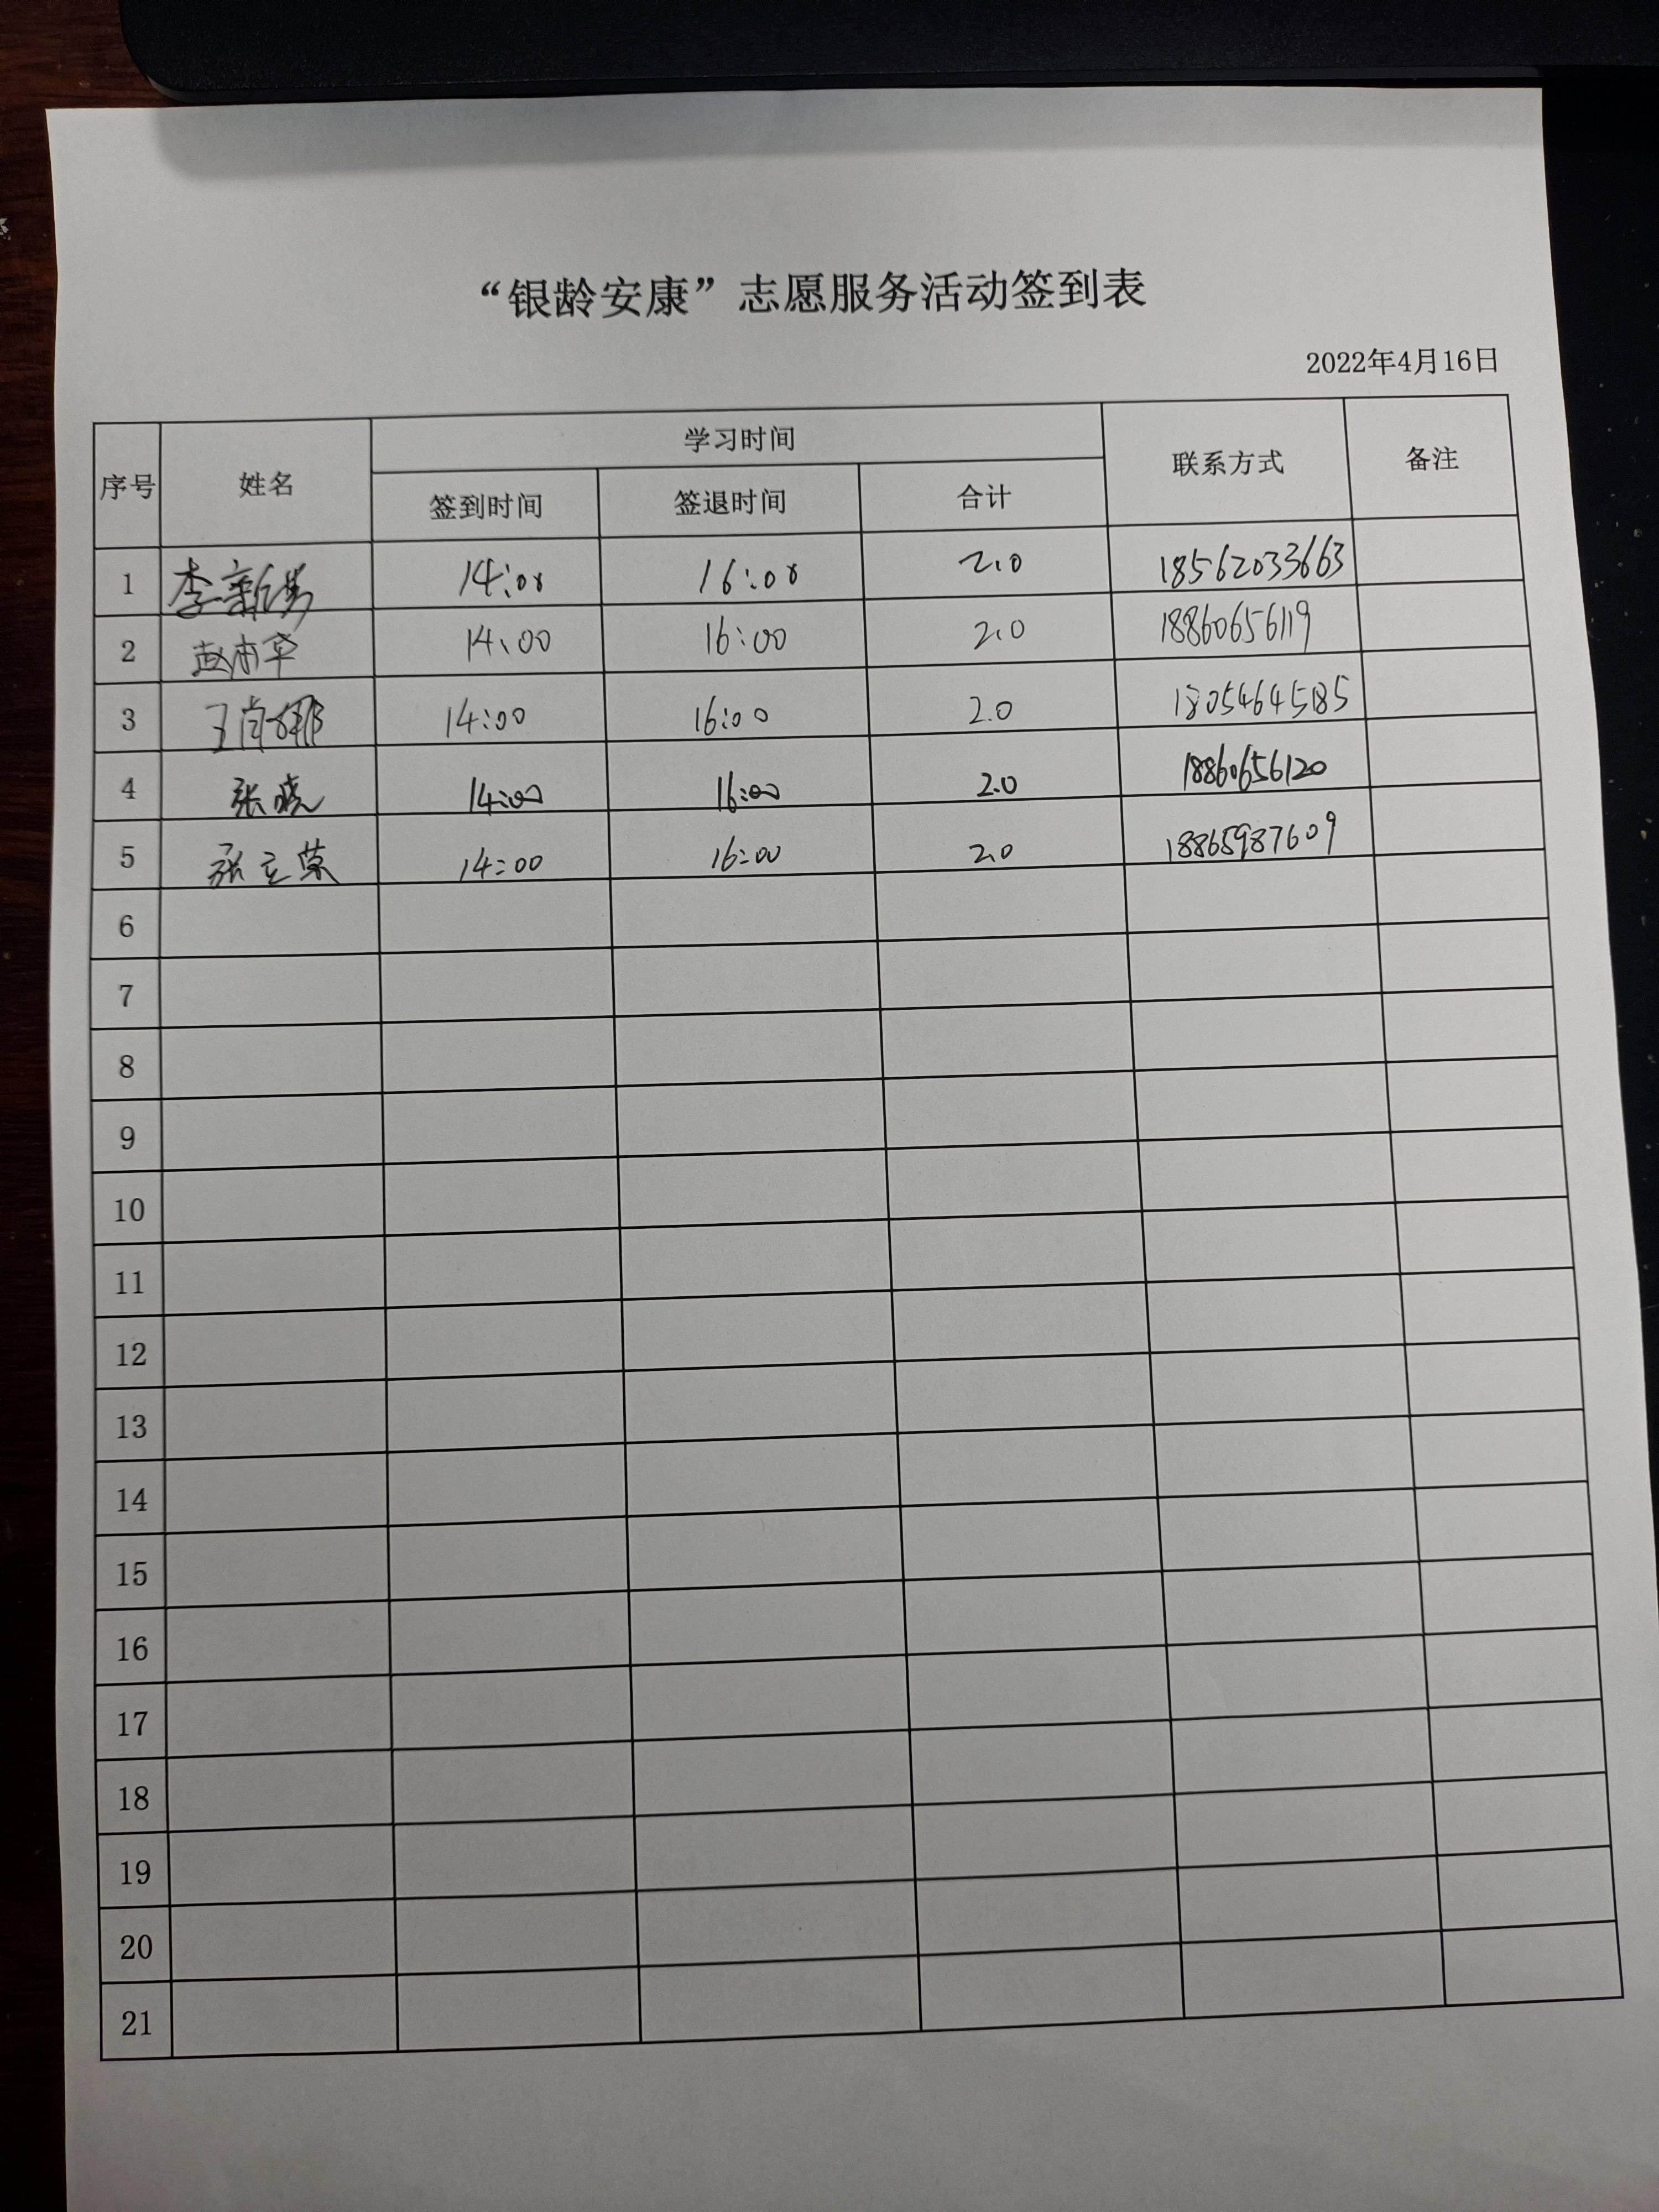 “银龄安康”志愿服务活动签到表
2022年4月16日
序号 姓名 学习时间 联系方式 备注
签到时间 签退时间 合计
1 李新 14:00 16:00 2.0 18562033663
2 赵 14:00 16:00 2.0 18860656119
3 王肖娜 14:00 16:00 2.0 18054645185
4 张晓 14:00 16:00 2.0 18860656120
5 张立荣 14:00 16:00 2.0 18865987609
6
7
8
9
10
11
12
13
14
15
16
17
18
19
20
21